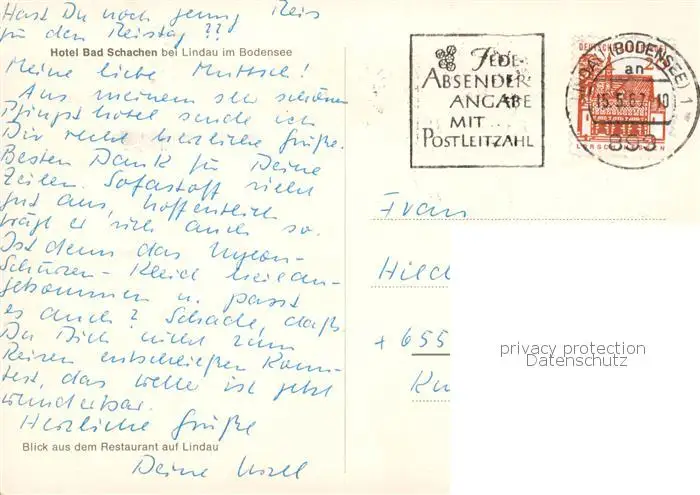 Hast Du noch genug Reis
für den Reistag ??
Hotel Bad Schachen bei Lindau im Bodensee
Meine liebe Muttsch!
Aus meinem sehr schönen
Pfingsthotel sende ich
Dir recht herzliche Grüße.
Besten Dank für Deine
Zeilen. Sofastoff sieht
gut aus, hoffentlich
trägt er sich auch so.
Ist denn das Nylon-
Schürzen-Kleid heilan-
gekommen u. passt
es auch? Schade, daß
Du Dich nicht zum
Reisen entschließen konn-
test, das Wetter ist jetzt
wunderbar.
Herzliche Grüße
Blick aus dem Restaurant auf Lindau
Deine
JEDE
ABSENDER-
ANGABE
MIT
POSTLEITZAHL
DEUTSCHE
LINDAU (BODENSEE)
an
15.5.67.10
893
Frau
Hild
+ 655
privacy protection
Datenschutz